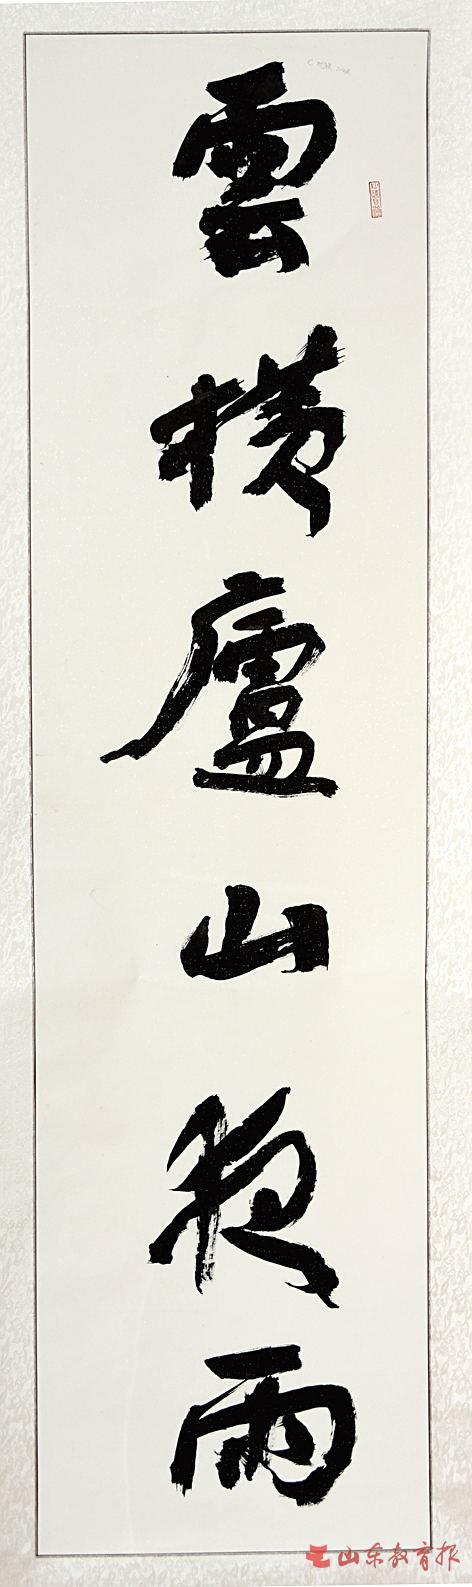 雲橫廬山夜雨
山东教育报